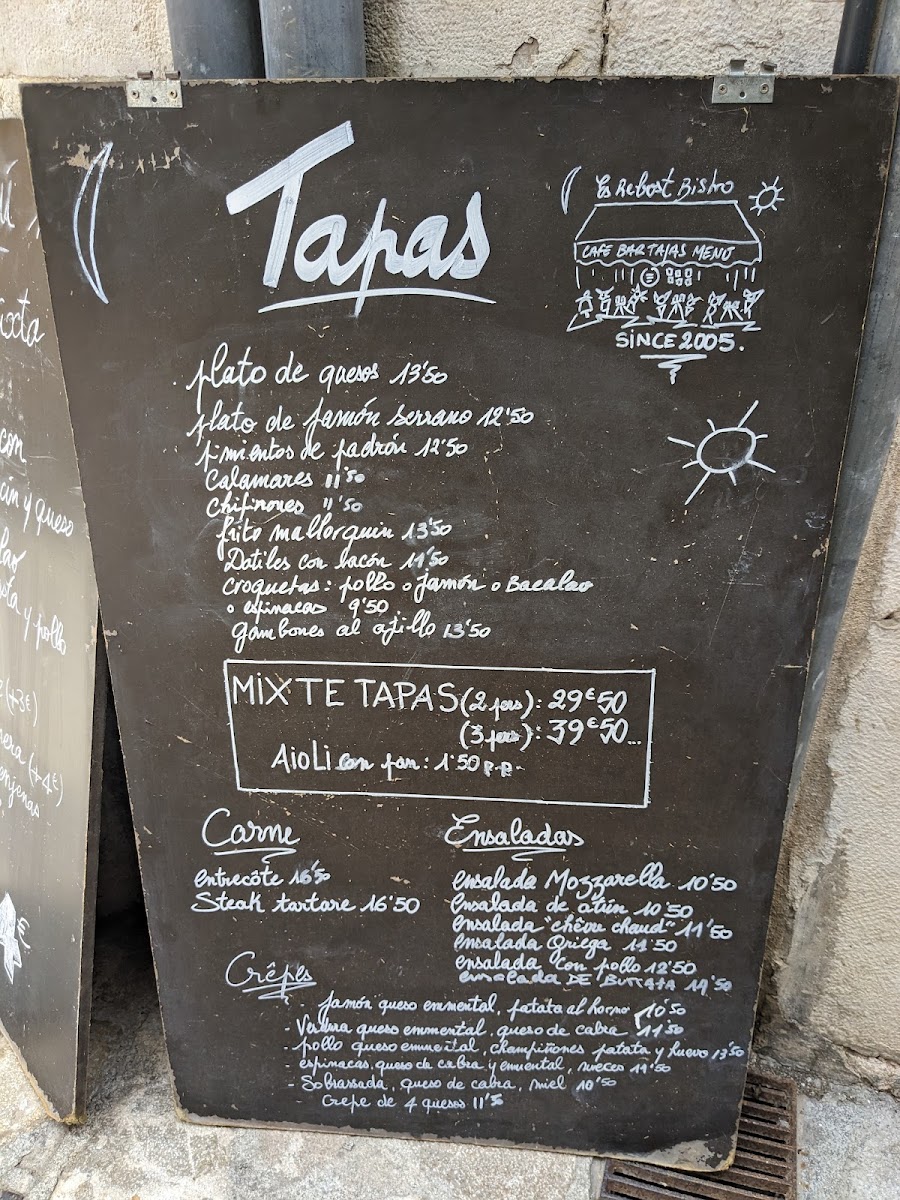 Tapas
Es Rebost Bistro
CAFE BAR TAPAS MENÚ
SINCE 2005.
plato de quesos 13'50
plato de jamón serrano 12'50
pimientos de padrón 12'50
Calamares 11'50
chipirones 11'50
frito mallorquin 13'50
Dotiles con bacón 11'50
croquetas: pollo o jamón o Bacalao
o espinacas 9'50
gambones al ajillo 13'50
MIXTE TAPAS (2 pers): 29€50
(3 pers): 39€50...
AioLi con pan: 1'50 p.p.
Carne
entrecôte 16'50
Steak tartare 16'50
Ensaladas
ensalada Mozzarella 10'50
Ensalada de atún 10'50
ensalada "chèvre chaud" 11'50
ensalada Griega 11'50
ensalada con pollo 12'50
ensalada DE BURRATA 14'50
Crêpes
- jamón queso emmental, patata al horno 10'50
- Verdura queso emmental, queso de cabra 11'50
- pollo queso emmental, champiñones patata y huevo 13'50
- espinacas, queso de cabra y emmental, nueces 11'50
- Sobrassada, queso de cabra, miel 10'50
Crepe de 4 quesos 11'50
ixta
con
y queso
y pollo
(+3€)
(+4€)
€